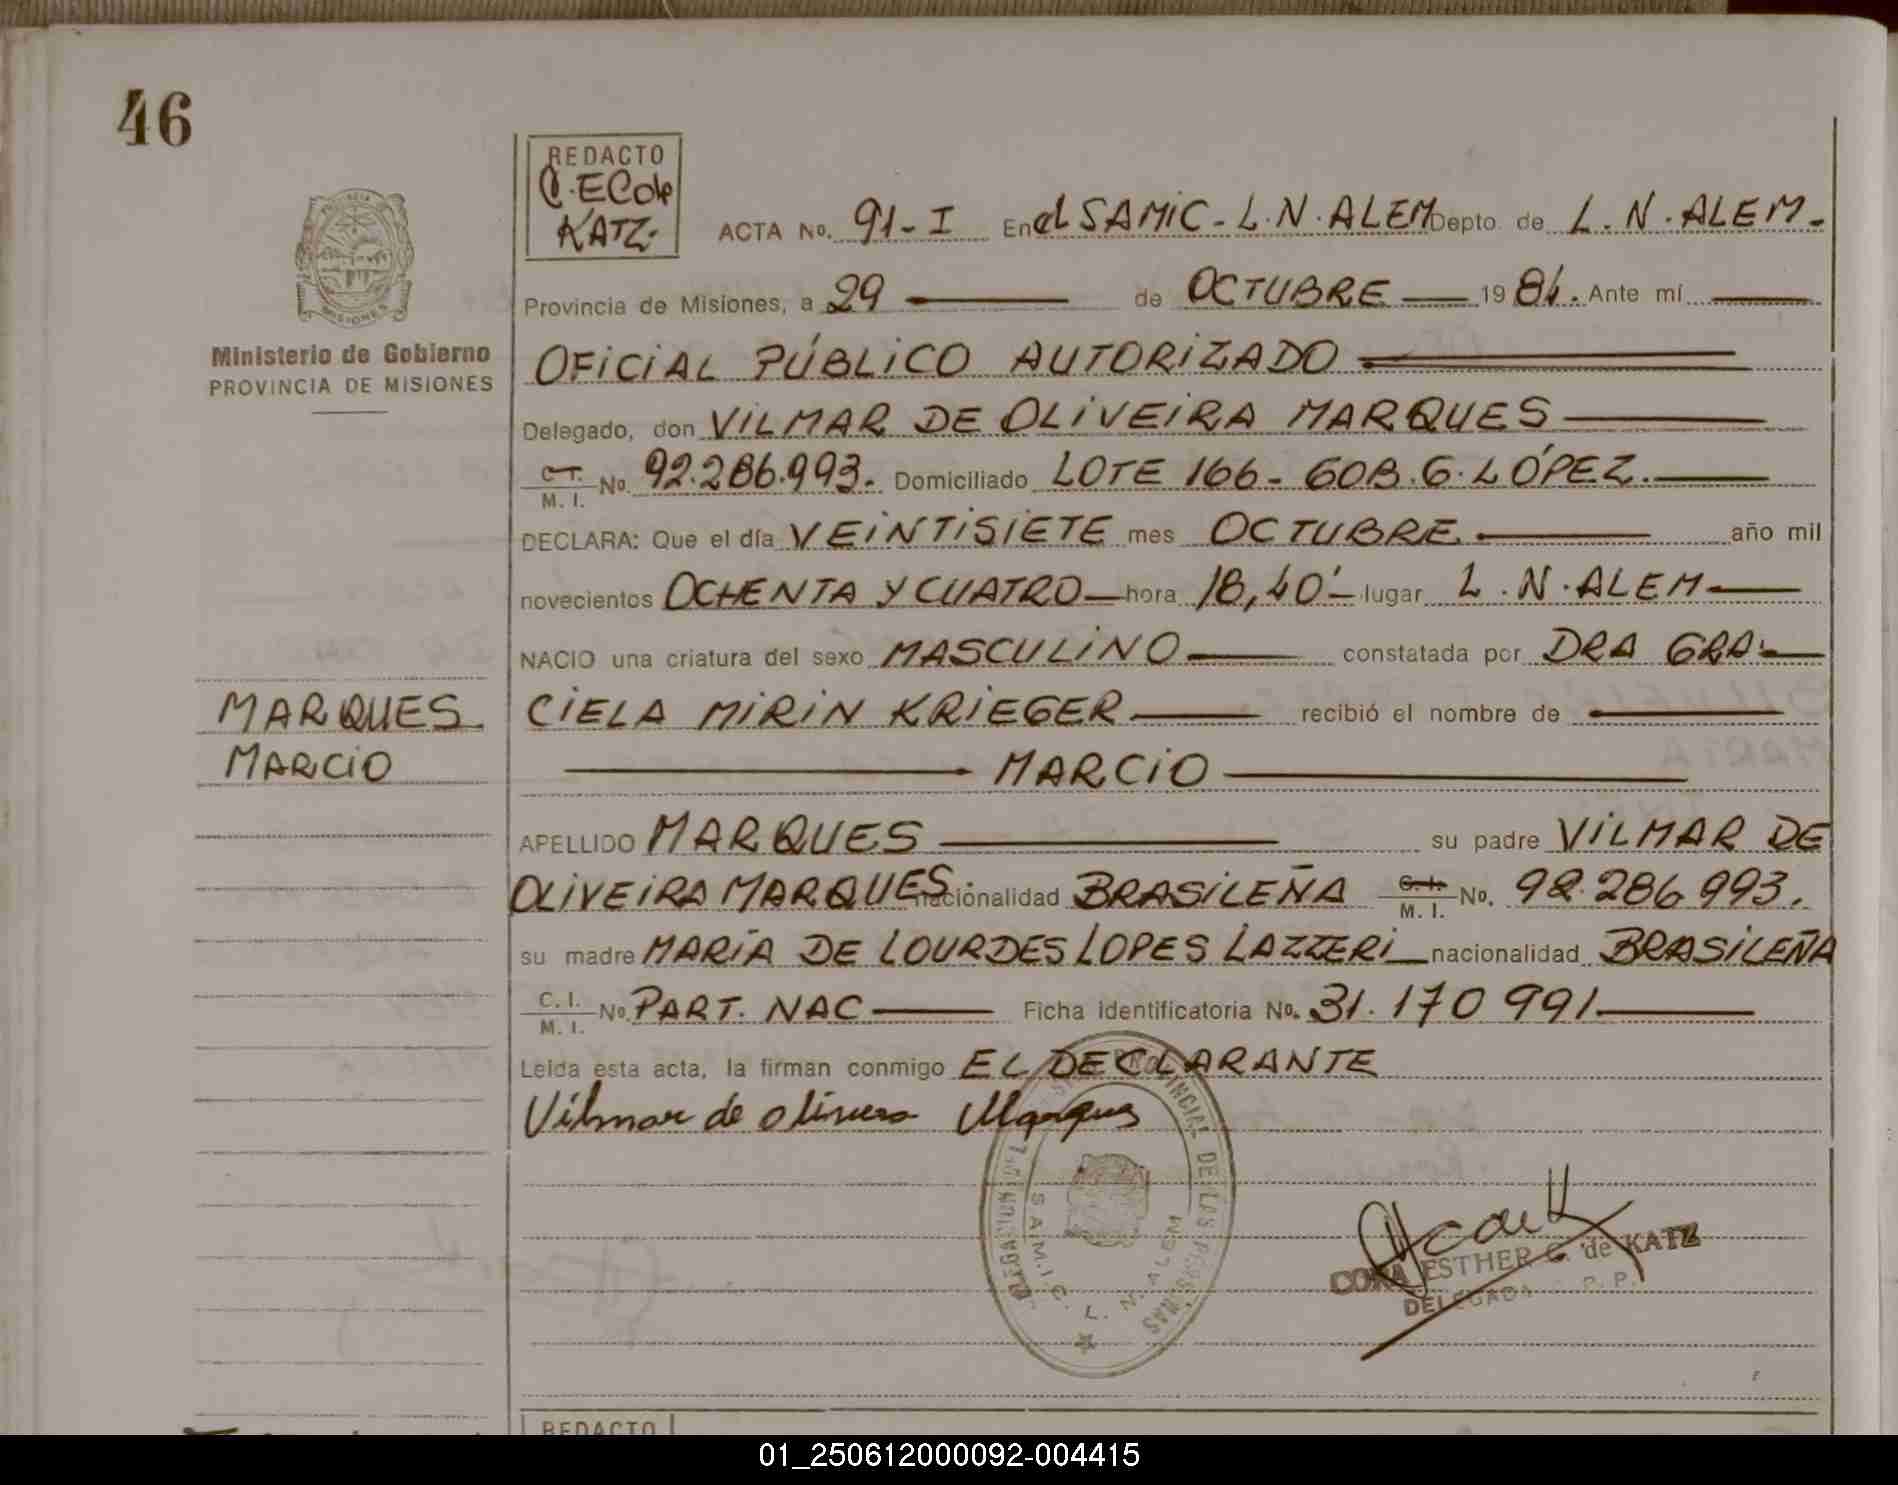 46
REDACTO
C. E C de
KATZ.
ACTA No. 91-I En el SAMIC - L.N.ALEM Depto. de L.N.ALEM.
Provincia de Misiones, a 29 de OCTUBRE 1984. Ante mí
OFICIAL PÚBLICO AUTORIZADO
Delegado, don VILMAR DE OLIVEIRA MARQUES
C.I. M. I. No. 92.286.993. Domiciliado LOTE 166 - GOB. G. LÓPEZ.
DECLARA: Que el día VEINTISIETE mes OCTUBRE año mil
novecientos OCHENTA Y CUATRO hora 18,40' lugar L.N.ALEM
NACIO una criatura del sexo MASCULINO constatada por DRA GRA-
CIELA MIRIN KRIEGER recibió el nombre de
MARCIO
APELLIDO MARQUES su padre VILMAR DE
OLIVEIRA MARQUES. nacionalidad BRASILEÑA C. I. M. I. No. 92.286.993.
su madre MARÍA DE LOURDES LOPES LAZZERI nacionalidad BRASILEÑA
C. I. M. I. No. PART. NAC Ficha identificatoria No. 31.170 991
Leida esta acta, la firman conmigo EL DECLARANTE
Vilmar de olivera Marques
Ministerio de Gobierno
PROVINCIA DE MISIONES
MARQUES
MARCIO
PROVINCIAL DE LAS PERSONAS
S.A.M.I.C. L. N. ALEM
ESTHER C. de KATZ
DELEGADA R. P. P.
REDACTO
01_250612000092-004415